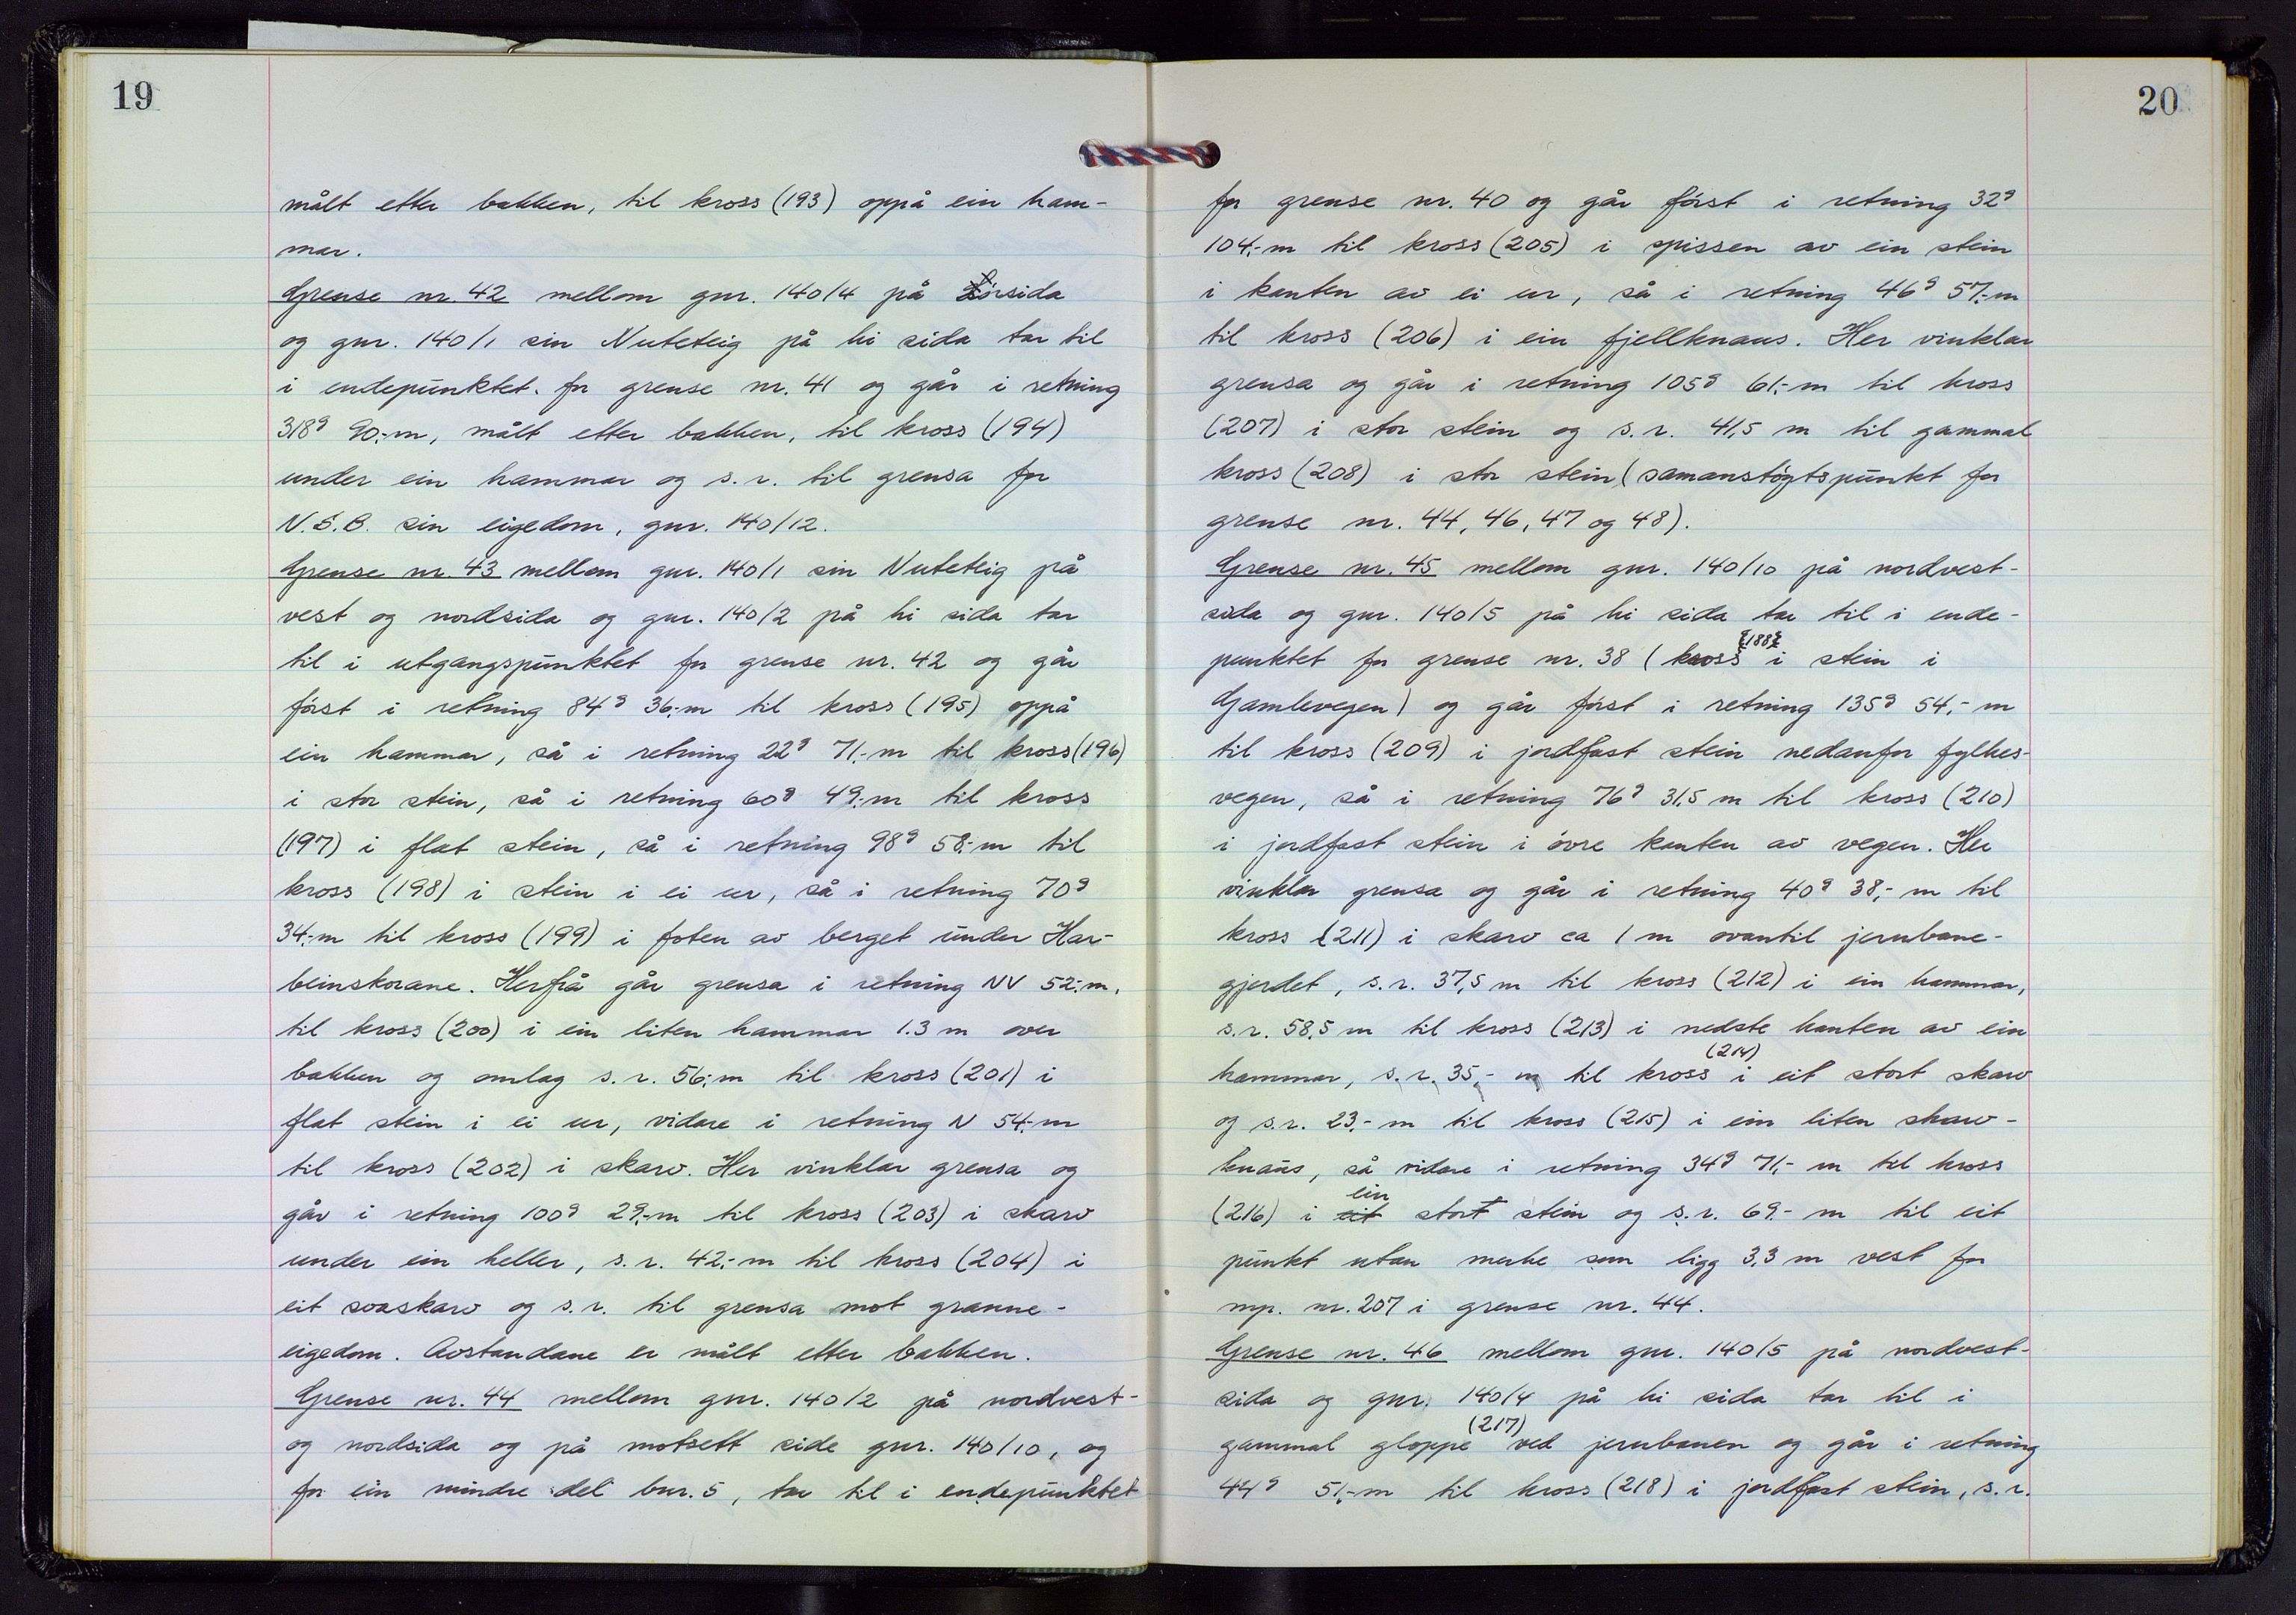 19
målt etter bakken, til kross (193) oppå ein ham-
mar.
Grense nr. 42 mellom gnr. 140/4 på sørsida
og gnr. 140/1 sin Nuteteig på hi sida tar til
i endepunktet for grense nr. 41 og går i retning
318g 90,-m, målt etter bakken, til kross (194)
under ein hammar og s.r. til grensa for
N.S.B. sin eigedom, gnr. 140/12.
Grense nr. 43 mellom gnr. 140/1 sin Nuteteig på
vest og nordsida og gnr. 140/2 på hi sida tar
til i utgangspunktet for grense nr. 42 og går
først i retning 84g 36,-m til kross (195) oppå
ein hammar, så i retning 22g 71,-m til kross (196)
i stor stein, så i retning 60g 49,-m til kross
(197) i flat stein, så i retning 98g 58,-m til
kross (198) i stein i ei ur, så i retning 70g
34,-m til kross (199) i foten av berget under Har-
beinskorane. Herfrå går grensa i retning NV 52,-m,
til kross (200) i ein liten hammar 1.3 m over
bakken og omlag s.r. 56,-m til kross (201) i
flat stein i ei ur, vidare i retning N 54,-m
til kross (202) i skarv. Her vinklar grensa og
går i retning 100g 29,-m til kross (203) i skarv
under ein heller, s.r. 42,-m til kross (204) i
eit svaskarv og s.r. til grensa mot granne-
eigedom. Avstandane er målt etter bakken.
Grense nr. 44 mellom gnr. 140/2 på nordvest-
og nordsida og på motsett side gnr. 140/10, og
for ein mindre del bnr. 5, tar til i endepunktet
20
for grense nr. 40 og går først i retning 32g
104,-m til kross (205) i spissen av ein stein
i kanten av ei ur, så i retning 46g 57,-m
til kross (206) i ein fjellknaus. Her vinklar
grensa og går i retning 105g 61,-m til kross
(207) i stor stein og s.r. 41,5 m til gammal
kross (208) i stor stein (samanstøytspunkt for
grense nr. 44, 46, 47 og 48).
Grense nr. 45 mellom gnr. 140/10 på nordvest-
sida og gnr. 140/5 på hi sida tar til i ende-
punktet for grense nr. 38 (kross {188} i stein i
Gamlevegen) og går først i retning 135g 54,- m
til kross (209) i jordfast stein nedanfor fylkes-
vegen, så i retning 76g 31,5 m til kross (210)
i jordfast stein i øvre kanten av vegen. Her
vinklar grensa og går i retning 40g 38,- m til
kross (211) i skarv ca 1 m ovantil jernbane-
gjerdet, s.r. 37,5 m til kross (212) i ein hammar,
s.r. 58,5 m til kross (213) i nedste kanten av ein
hammar, s.r. 35,- m til kross (214) i eit stort skarv
og s.r. 23,- m til kross (215) i ein liten skarv-
knaus, så vidare i retning 34g 71,- m til kross
(216) i eit ein stort stein og s.r. 69,- m til eit
punkt utan merke som ligg 3,3 m vest for
mp. nr. 207 i grense nr. 44.
Grense nr. 46 mellom gnr. 140/5 på nordvest-
sida og gnr. 140/4 på hi sida tar til i
gammal gloppe (217) ved jernbanen og går i retning
44g 51,-m til kross (218) i jordfast stein, s.r.